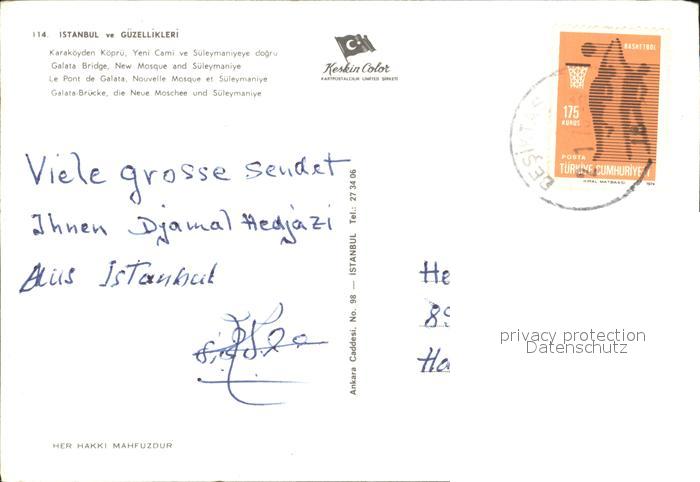 114. ISTANBUL ve GÜZELLİKLERİ
Karaköyden Köprü, Yeni Cami ve Süleymaniyeye doğru
Galata Bridge, New Mosque and Süleymaniye
Le Pont de Galata, Nouvelle Mosque et Süleymaniye
Galata-Brücke, die Neue Moschee und Süleymaniye
Keskin Color
KARTPOSTALCILIK LIMITED ŞİRKETİ
BASKETBOL
175
KURUŞ
POSTA
TÜRKİYE CUMHURİYETİ
1974
BEŞİKTAŞ
Viele grosse sendet
Ihnen Djamal Hedjazi
Aus Istanbul
Ankara Caddesi. No. 98 — ISTANBUL Tel.: 27 34 06
He
89
Ha
privacy protection
Datenschutz
HER HAKKI MAHFUZDUR